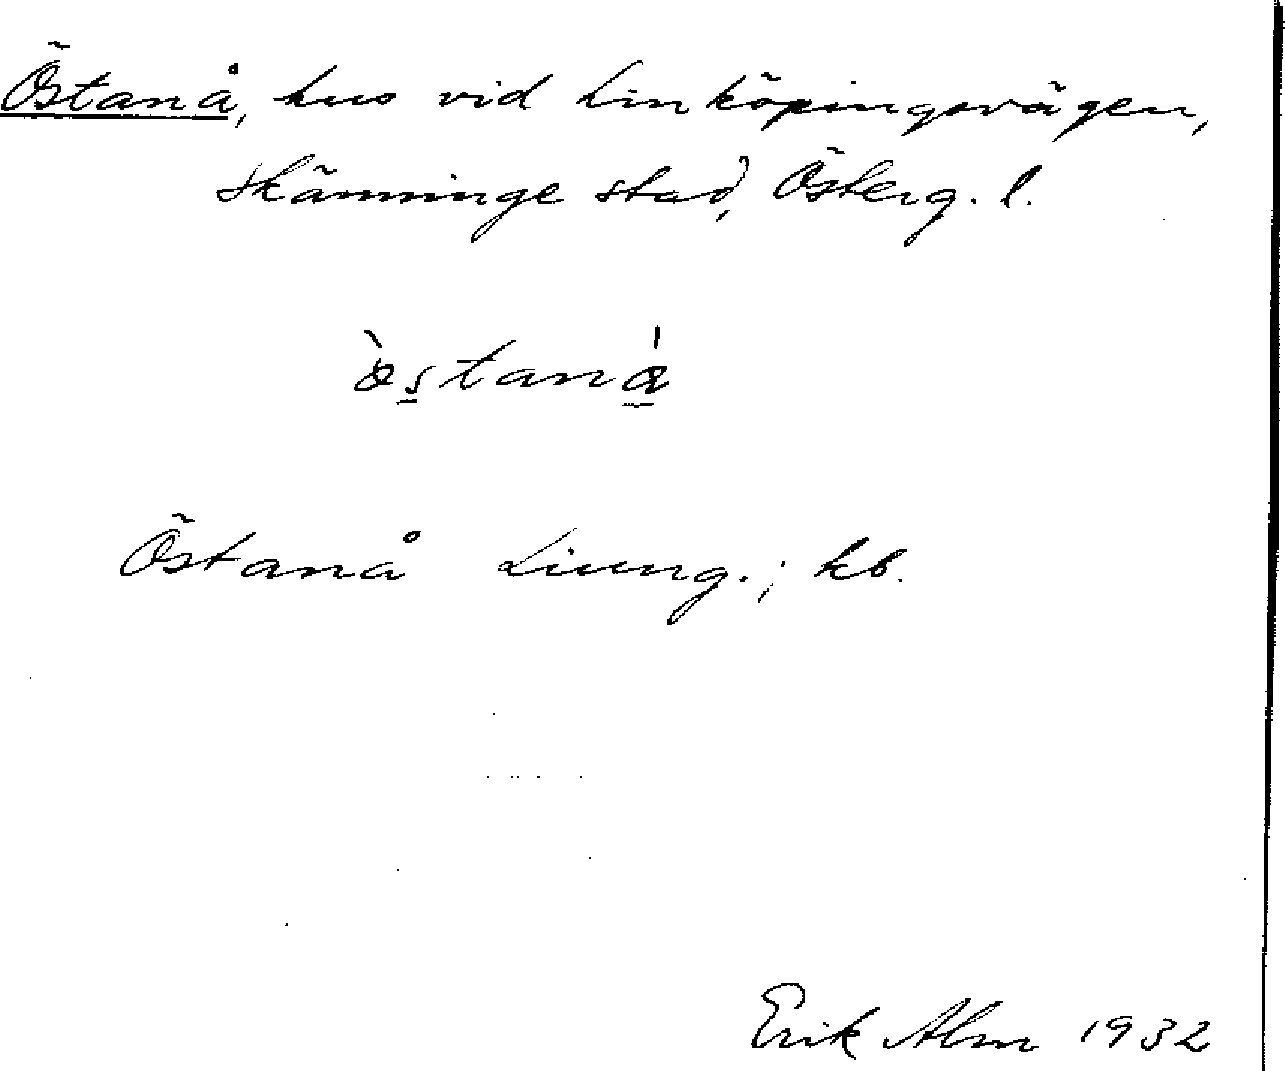 Östanå, hus vid Linköpingsvägen,
Skänninge stad, Österg. l.
Östanå Ljung.; kb.
Erik Alm 1932